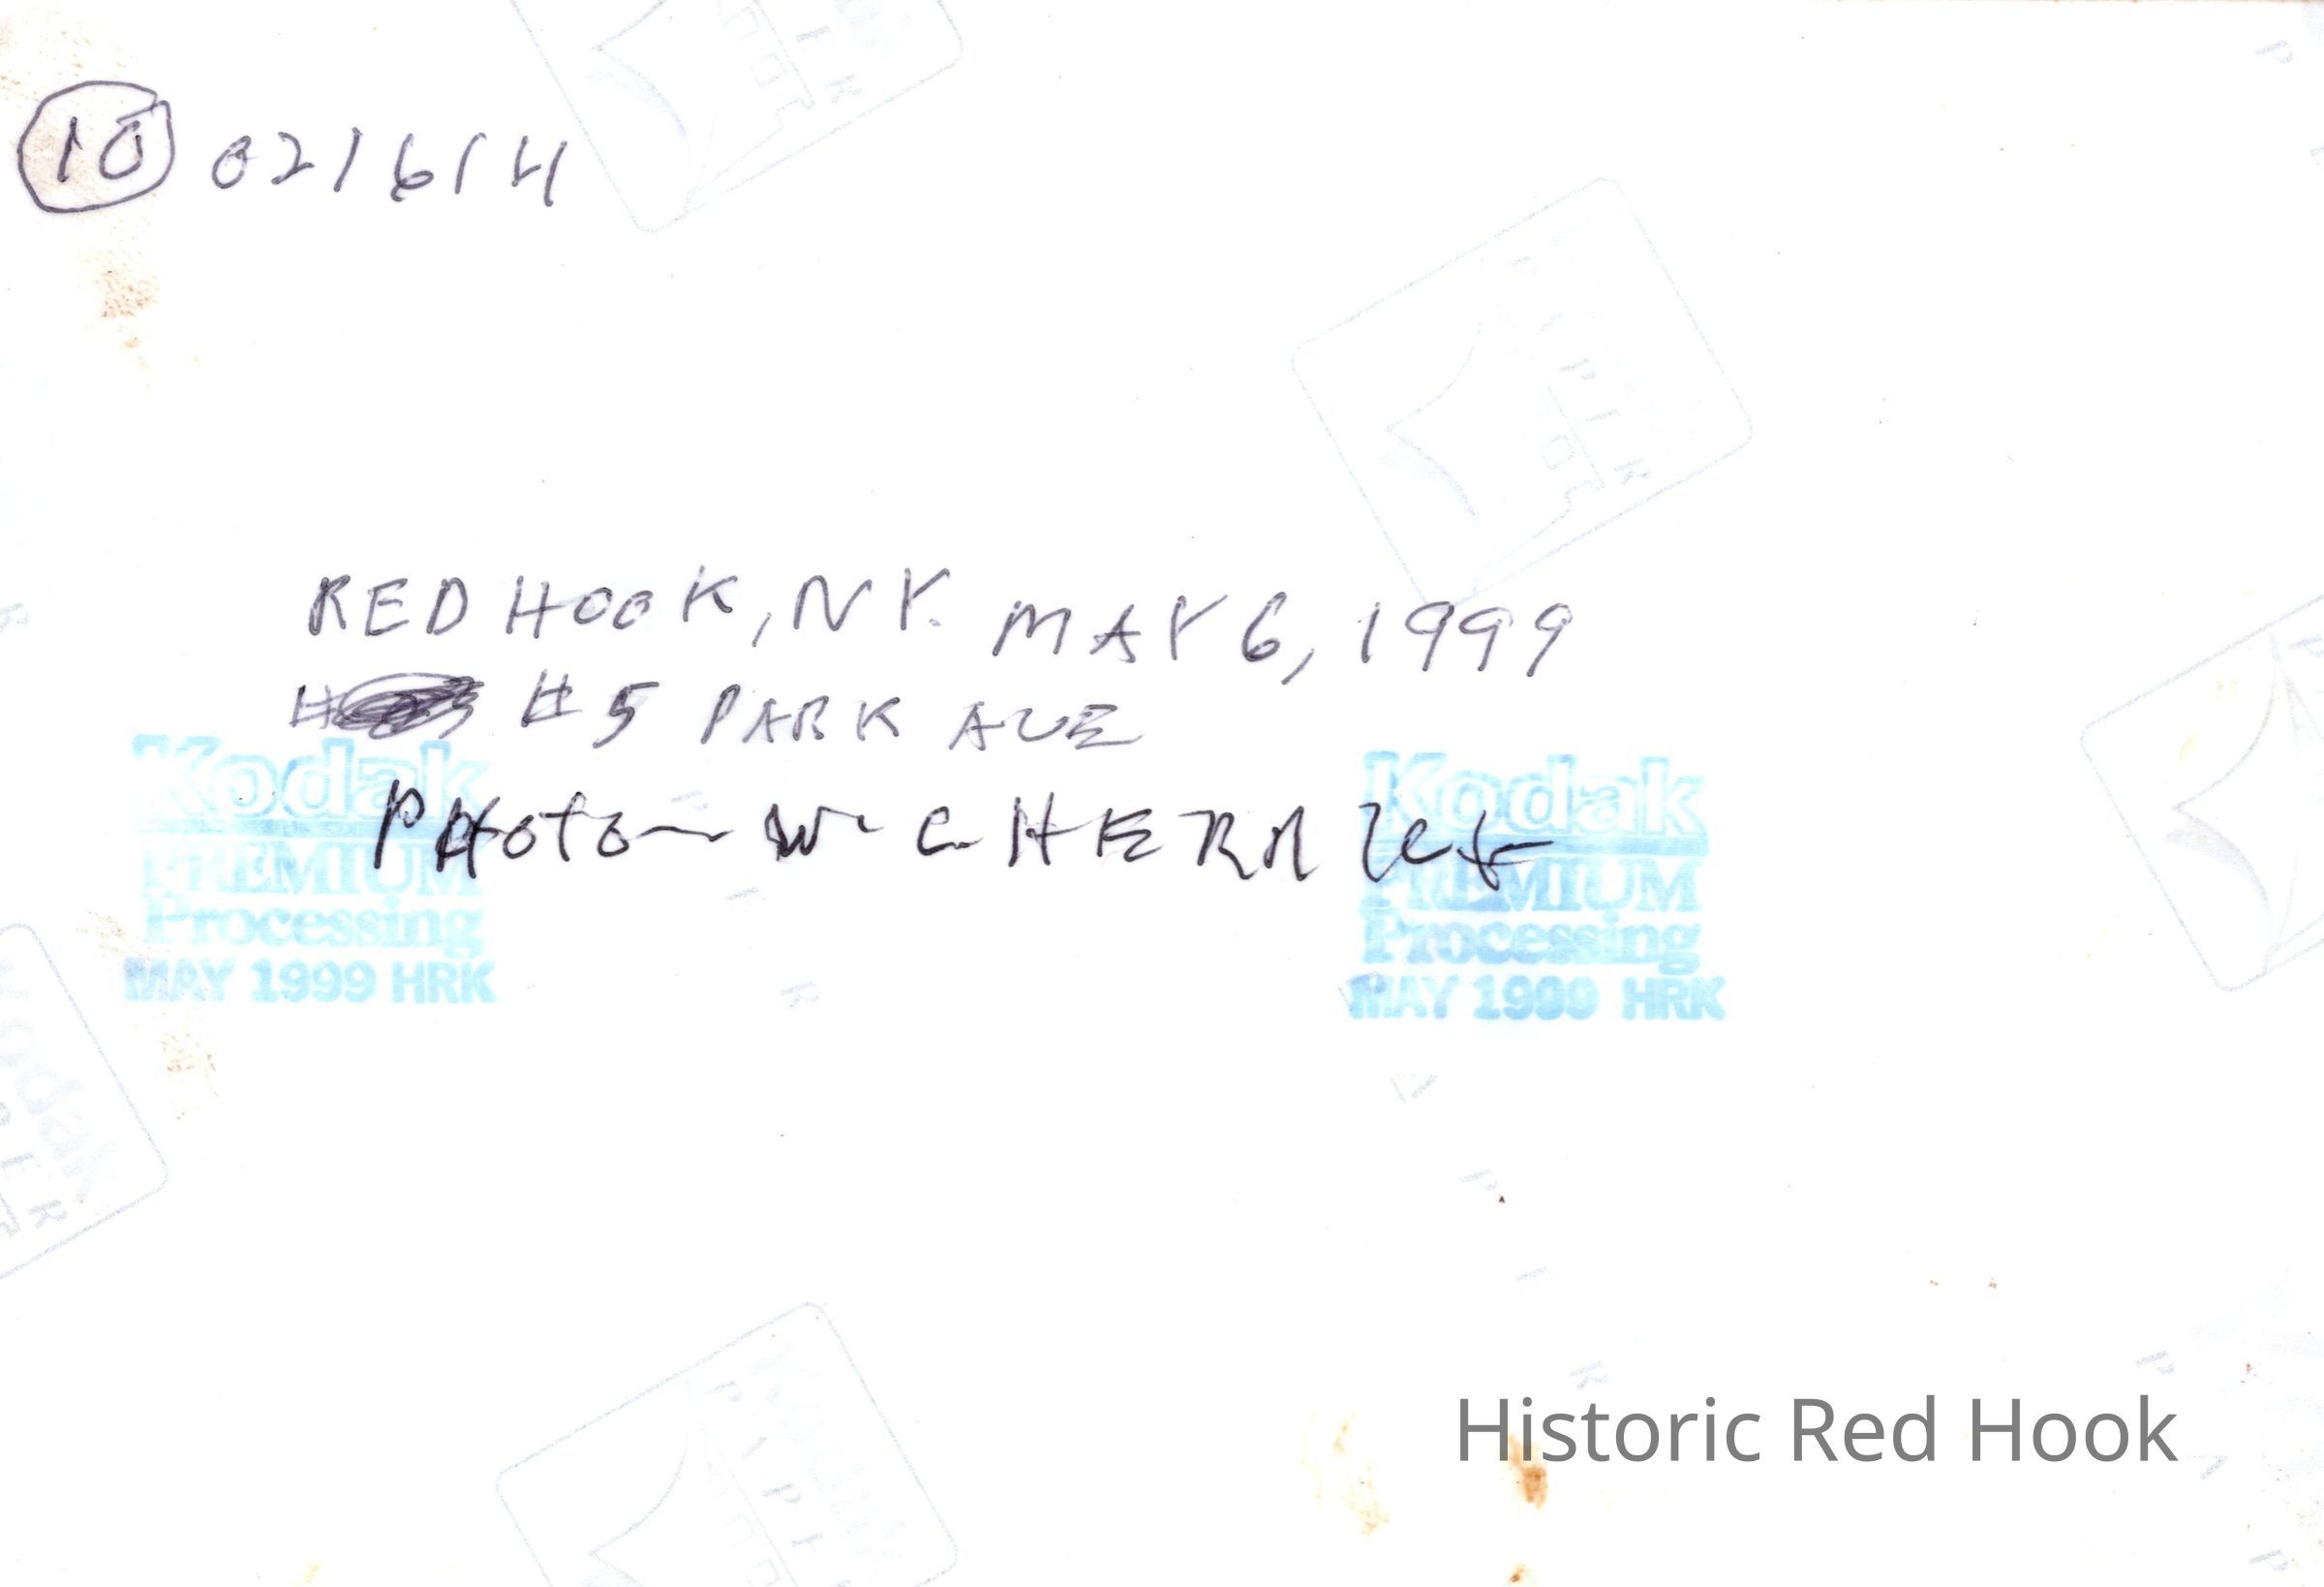 10 021614
RED HOOK, NY. MAY 6, 1999
#5 PARK AVE
PHOTO W
Kodak
PREMIUM
Processing
MAY 1999 HRK
Kodak
PREMIUM
Processing
MAY 1999 HRK
Historic Red Hook